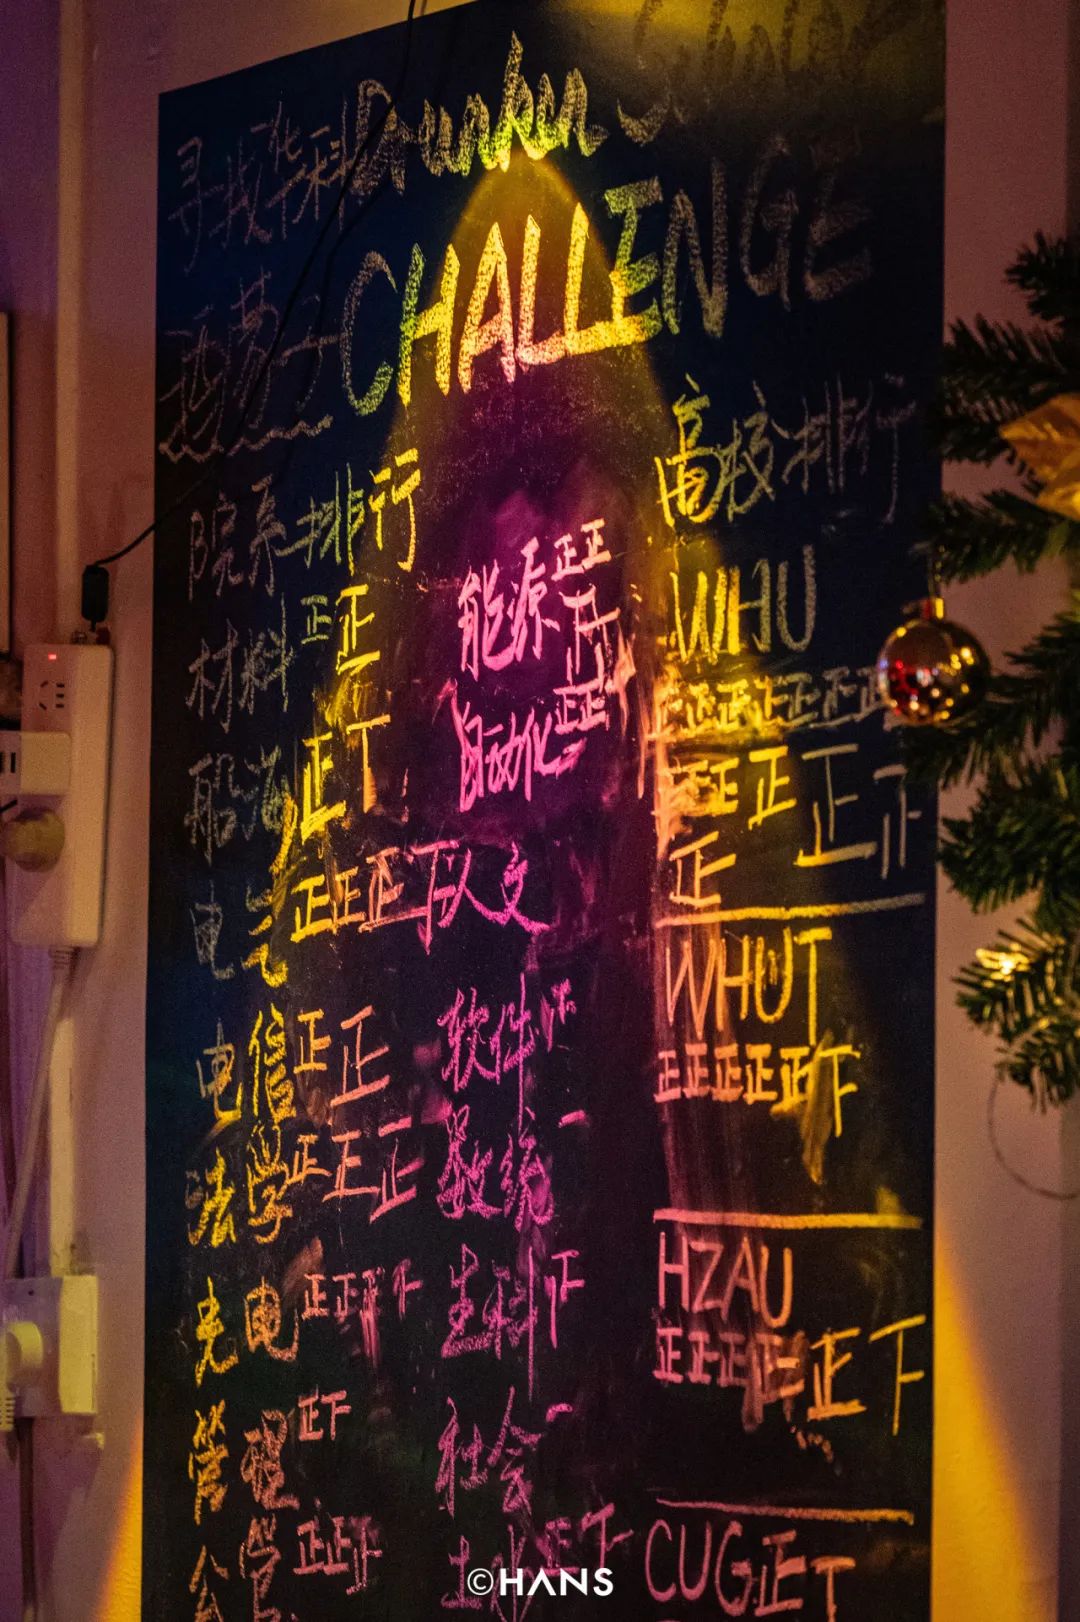 寻找华科Drunken
酒蒙子CHALLENGE
院系排行
材料正正
船海正丅
电气正正正下
电信正正
法学正正正
光电正正正下
管理正下
公
能源正正
自动化正正
人文
软件
数统一
生科正
社会一
土水正下
高校排行
WHU
正正正正正正
正正正正
正
WHUT
正正正正正下
HZAU
正正正正正正下
CUG正丅
©HANS